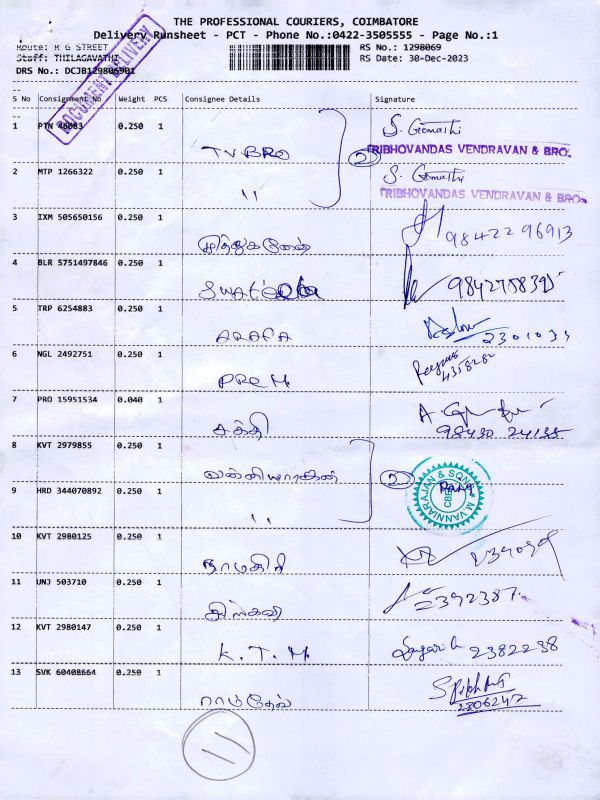 THE PROFESSIONAL COURIERS, COIMBATORE
Delivery Runsheet - PCT - Phone No.:0422-3505555 - Page No.:1
Route: M G STREET RS No.: 1298069
Staff: THILAGAVATHI RS Date: 30-Dec-2023
DRS No.: DCJB129806901
DOCUMENT DELIVERY
S No Consignment No Weight PCS Consignee Details Signature
1 PTN 46083 0.250 1 TV BRO S. Gomathi
2 TRIBHOVANDAS VENDRAVAN & BRO.
2 MTP 1266322 0.250 1 " S. Gomathi
TRIBHOVANDAS VENDRAVAN & BRO.
3 IXM 505650156 0.250 1 98422 96913
4 BLR 5751497846 0.250 1
5 TRP 6254883 0.250 1
6 NGL 2492751 0.250 1 PREM
7 PRO 15951534 0.040 1 சக்தி
98430 24135
8 KVT 2979855 0.250 1 வன்னியராஜன் 2
M. VANNIARAJAN & SONS
9 HRD 344070892 0.250 1 "
10 KVT 2980125 0.250 1 நாமகிரி
11 UNJ 503710 0.250 1 2392387
12 KVT 2980147 0.250 1 K. T. M. 2382238
13 SVK 60408664 0.250 1 ராமதேவ்
2306247
11